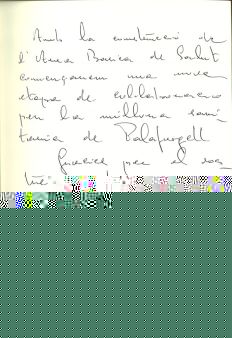 Amb la constitució de
l'Area Bàsica de Salut
començarem una nova
etapa de col·laboració
per la millora sani
tària de Palafrugell
Gràcies per el vos
tre